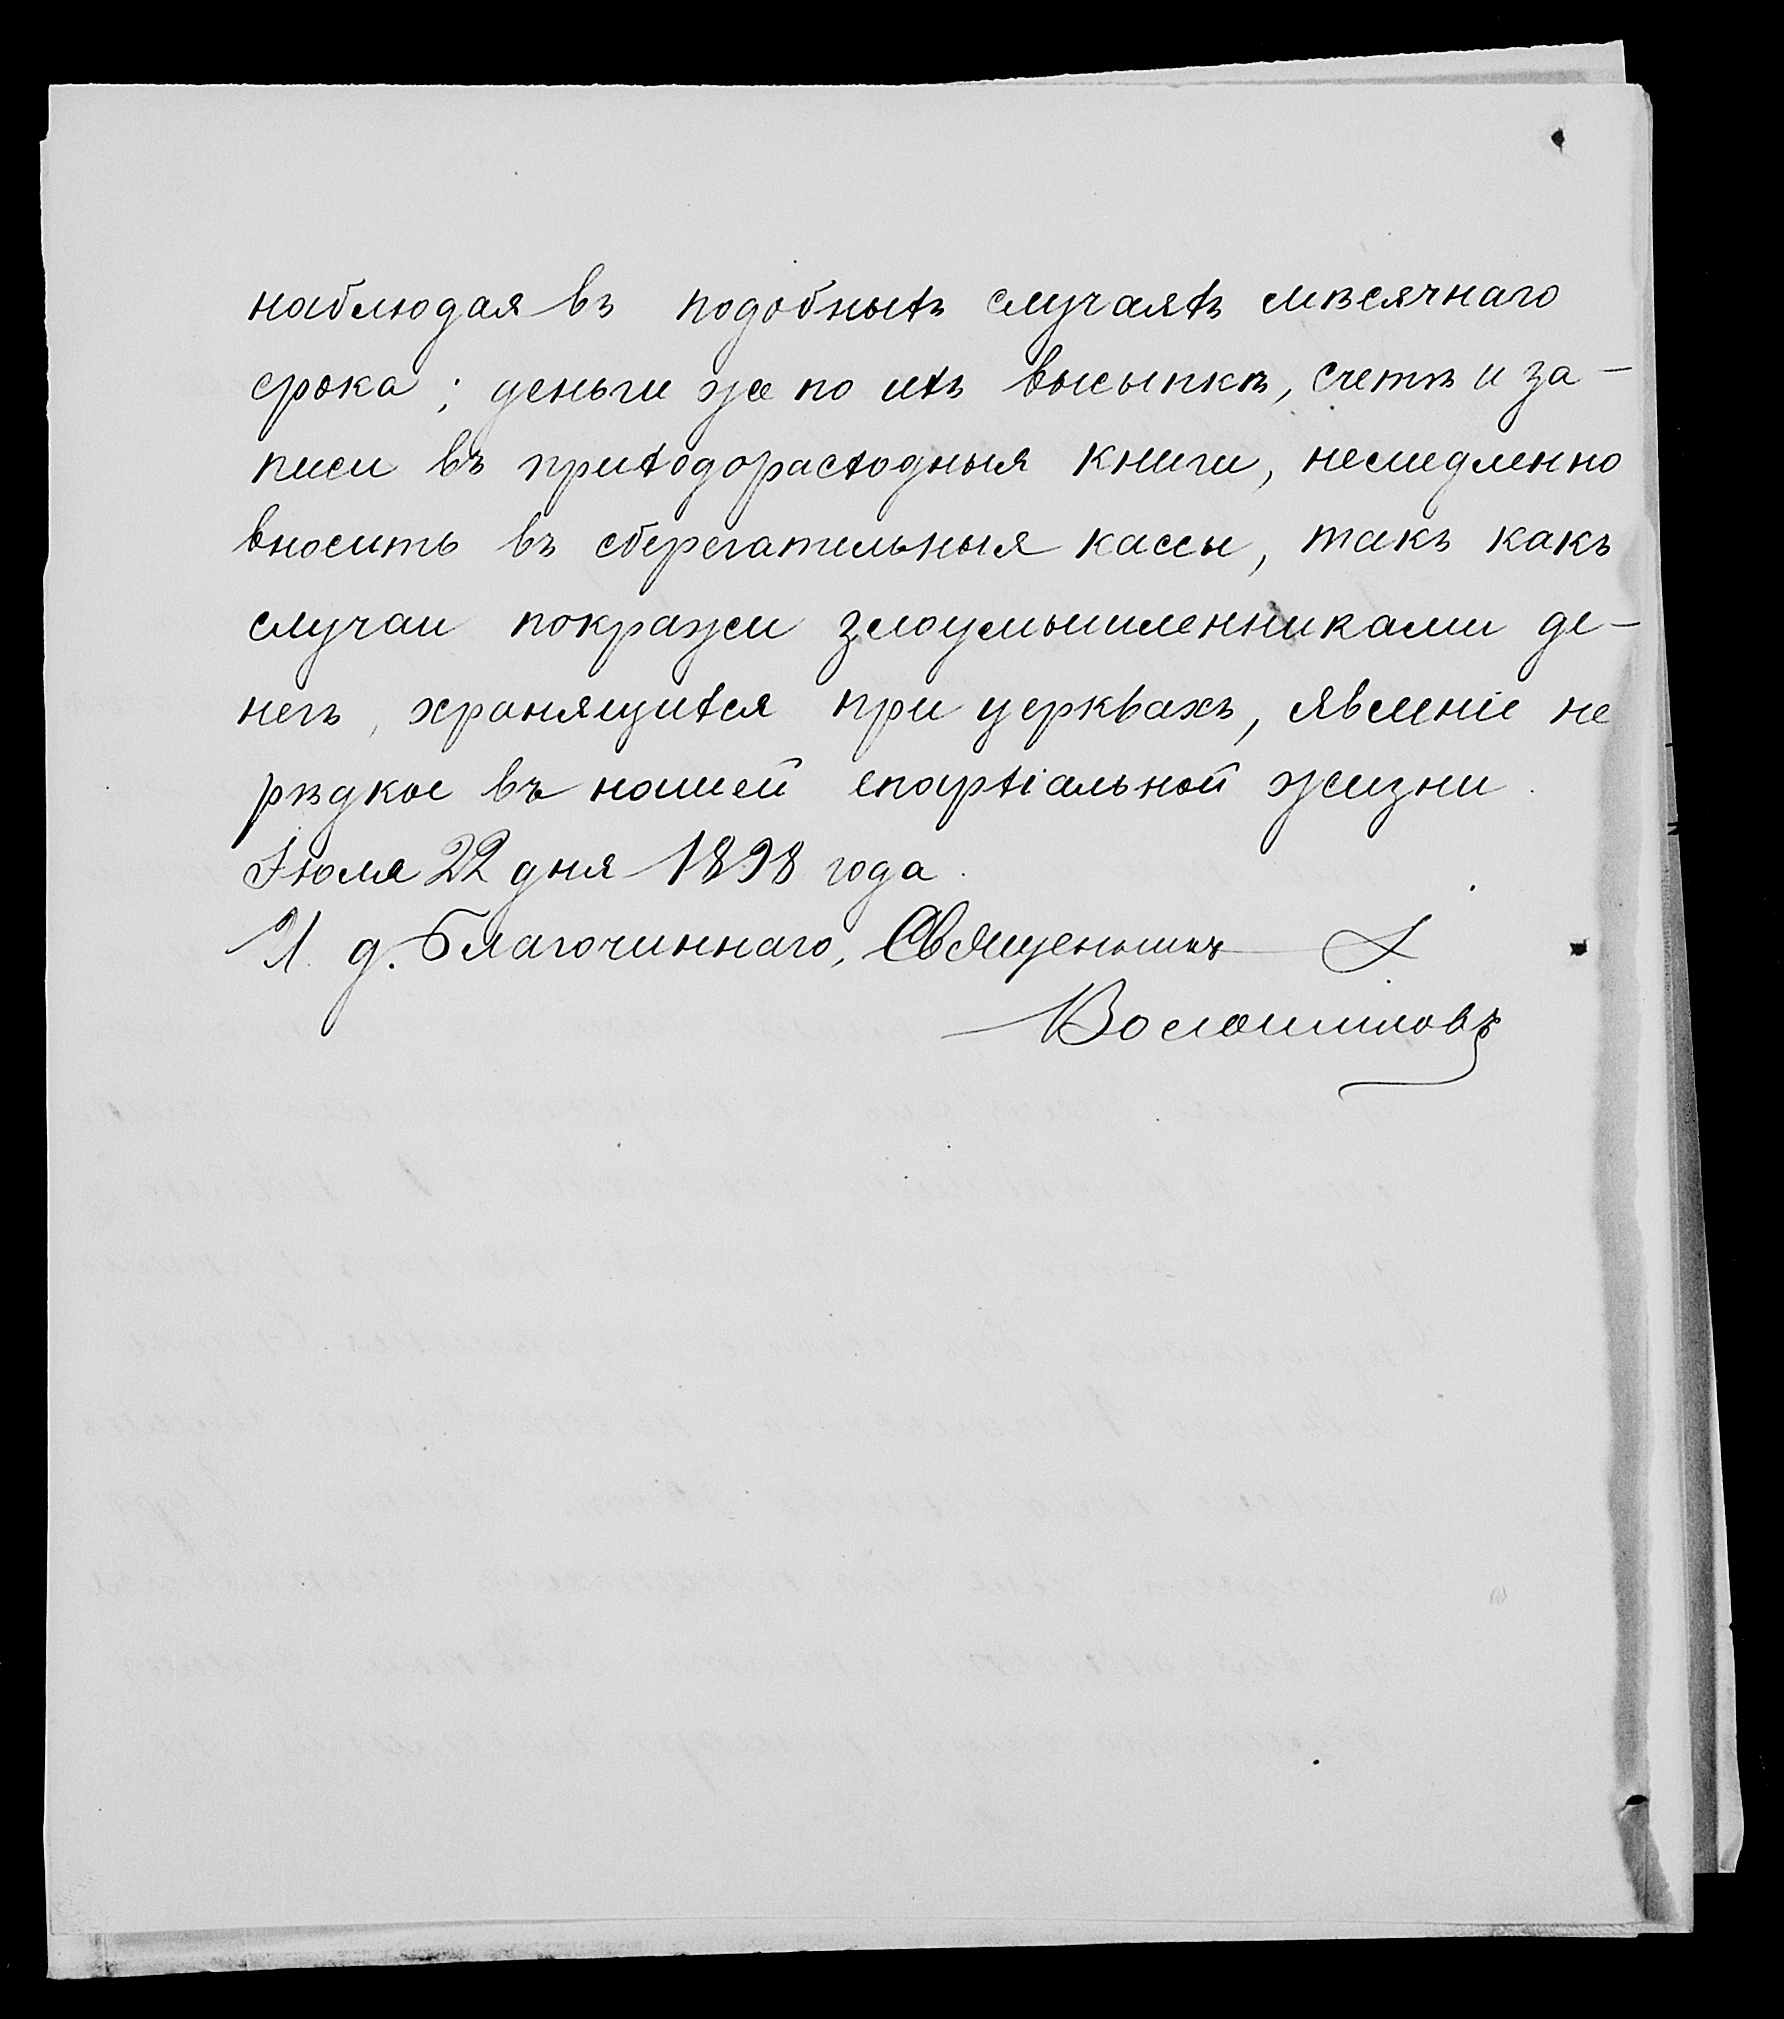 наблюдая въ подобныхъ случаяхъ мѣсячнаго
срока; деньги же по ихъ высыпкѣ, счетѣ и за-
писи въ приходорасходныя книги, немедленно
вносить въ сберегательныя кассы, такъ какъ
случаи покражи злоумышленниками де-
негъ, хранящихся при церквахъ, явленіе не
рѣдкое въ нашей епархіальной жизни.
Іюля 22 дня 1898 года.
И. д. Благочиннаго, Священникъ
Волошиновъ